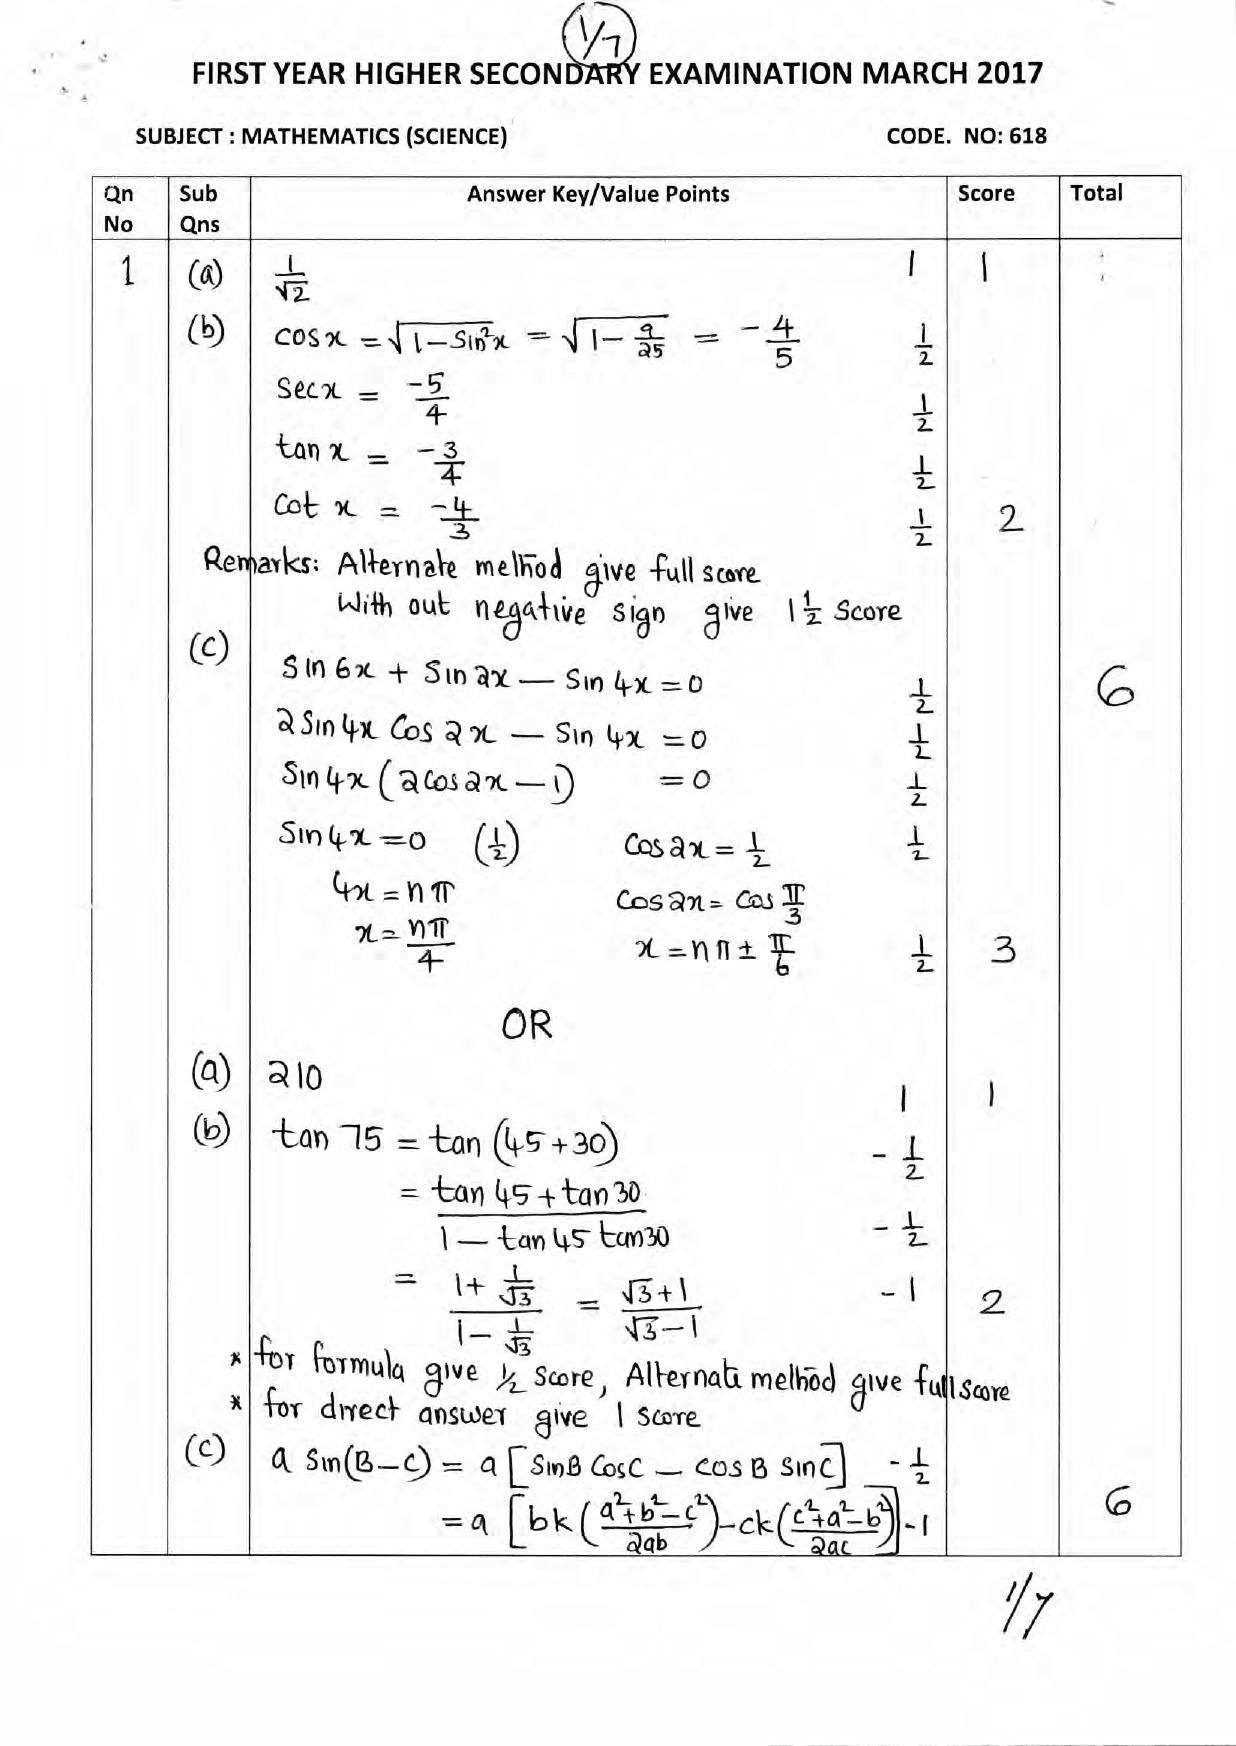 1/7
FIRST YEAR HIGHER SECONDARY EXAMINATION MARCH 2017
SUBJECT : MATHEMATICS (SCIENCE) CODE. NO: 618
Qn No Sub Qns Answer Key/Value Points Score Total
1 (a) 1/√2 1 1
(b) cosx = √(1-sin²x) = √(1-9/25) = -4/5 1/2
Secx = -5/4 1/2
tan x = -3/4 1/2
Cot x = -4/3 1/2 2
Remarks: Alternate method give full score
With out negative sign give 1 1/2 Score
(c)
Sin 6x + Sin 2x — Sin 4x = 0 1/2 6
2 Sin 4x Cos 2x — Sin 4x = 0 1/2
Sin 4x (2cos2x — 1) = 0 1/2
Sin 4x = 0 (1/2) Cos 2x = 1/2 1/2
4x = nπ Cos 2x = Cos π/3
x = nπ/4 x = nπ ± π/6 1/2 3
OR
(a) 210 1 1
(b) tan 75 = tan (45+30) - 1/2
= (tan 45 + tan 30)/(1 — tan 45 tan 30) - 1/2
= (1+ 1/√3)/(1- 1/√3) = (√3+1)/(√3-1) - 1 2
* for formula give 1/2 score, Alternate method give full score
* for direct answer give 1 score
(c) a Sin(B-C) = a [SinB CosC — cosB sinC] - 1/2
= a [bk ((a²+b²-c²)/2ab) - ck ((c²+a²-b²)/2ac)] - 1 6
1/7